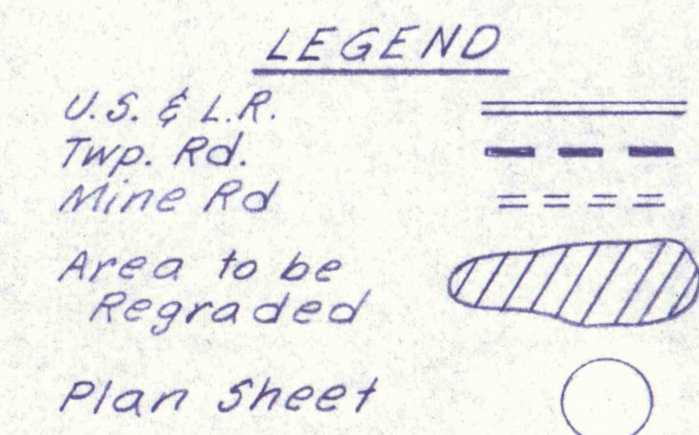 LEGEND
U.S. & L.R.
Twp. Rd.
Mine Rd
Area to be
Regraded
Plan Sheet